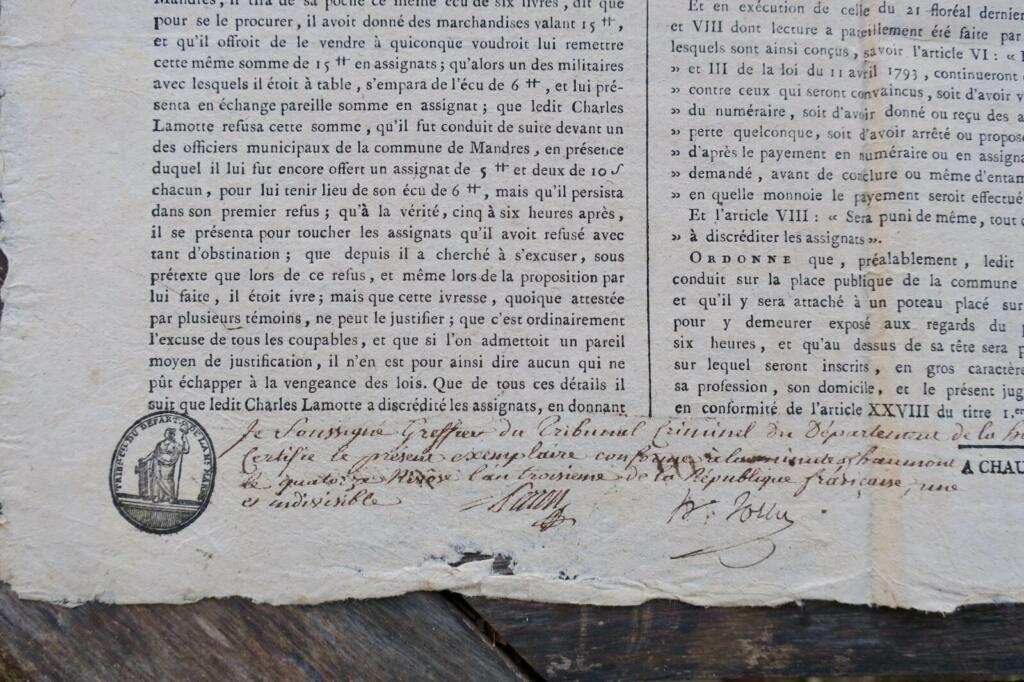 Mandres, il tira de sa poche ce même écu de six livres, dit que
pour se le procurer, il avoit donné des marchandises valant 15 ₶,
et qu'il offroit de le vendre à quiconque voudroit lui remettre
cette même somme de 15 ₶ en assignats ; qu'alors un des militaires
avec lesquels il étoit à table, s'empara de l'écu de 6 ₶, et lui pré-
senta en échange pareille somme en assignat ; que ledit Charles
Lamotte refusa cette somme, qu'il fut conduit de suite devant un
des officiers municipaux de la commune de Mandres, en présence
duquel il lui fut encore offert un assignat de 5 ₶ et deux de 10 s
chacun, pour lui tenir lieu de son écu de 6 ₶, mais qu'il persista
dans son premier refus ; qu'à la vérité, cinq à six heures après,
il se présenta pour toucher les assignats qu'il avoit refusé avec
tant d'obstination ; que depuis il a cherché à s'excuser, sous
prétexte que lors de ce refus, et même lors de la proposition par
lui faite, il étoit ivre ; mais que cette ivresse, quoique attestée
par plusieurs témoins, ne peut le justifier ; que c'est ordinairement
l'excuse de tous les coupables, et que si l'on admettoit un pareil
moyen de justification, il n'en est pour ainsi dire aucun qui ne
pût échapper à la vengeance des lois. Que de tous ces détails il
suit que ledit Charles Lamotte a discrédité les assignats, en donnant
Et en exécution de celle du 21 floréal dernier
et VIII dont lecture a pareillement été faite par
lesquels sont ainsi conçus, savoir l'article VI : «
» et III de la loi du 11 avril 1793, continueront
» contre ceux qui seront convaincus, soit d'avoir v
» du numéraire, soit d'avoir donné ou reçu des a
» perte quelconque, soit d'avoir arrêté ou propos
» d'après le payement en numéraire ou en assigna
» demandé, avant de conclure ou même d'entam
» en quelle monnoie le payement seroit effectué
Et l'article VIII : « Sera puni de même, tout
» à discréditer les assignats ».
ORDONNE que, préalablement, ledit
conduit sur la place publique de la commune
et qu'il y sera attaché à un poteau placé sur
pour y demeurer exposé aux regards du p
six heures, et qu'au dessus de sa tête sera p
sur lequel seront inscrits, en gros caractère
sa profession, son domicile, et le présent jug
en conformité de l'article XXVIII du titre 1.er
A CHAU
Je Soussigné Greffier du Tribunal Criminel du Département de la h
Certifie le présent exemplaire conforme à la minute chaumont
le quatorze Nivôse l'an troisieme de la République française, une
et indivisible